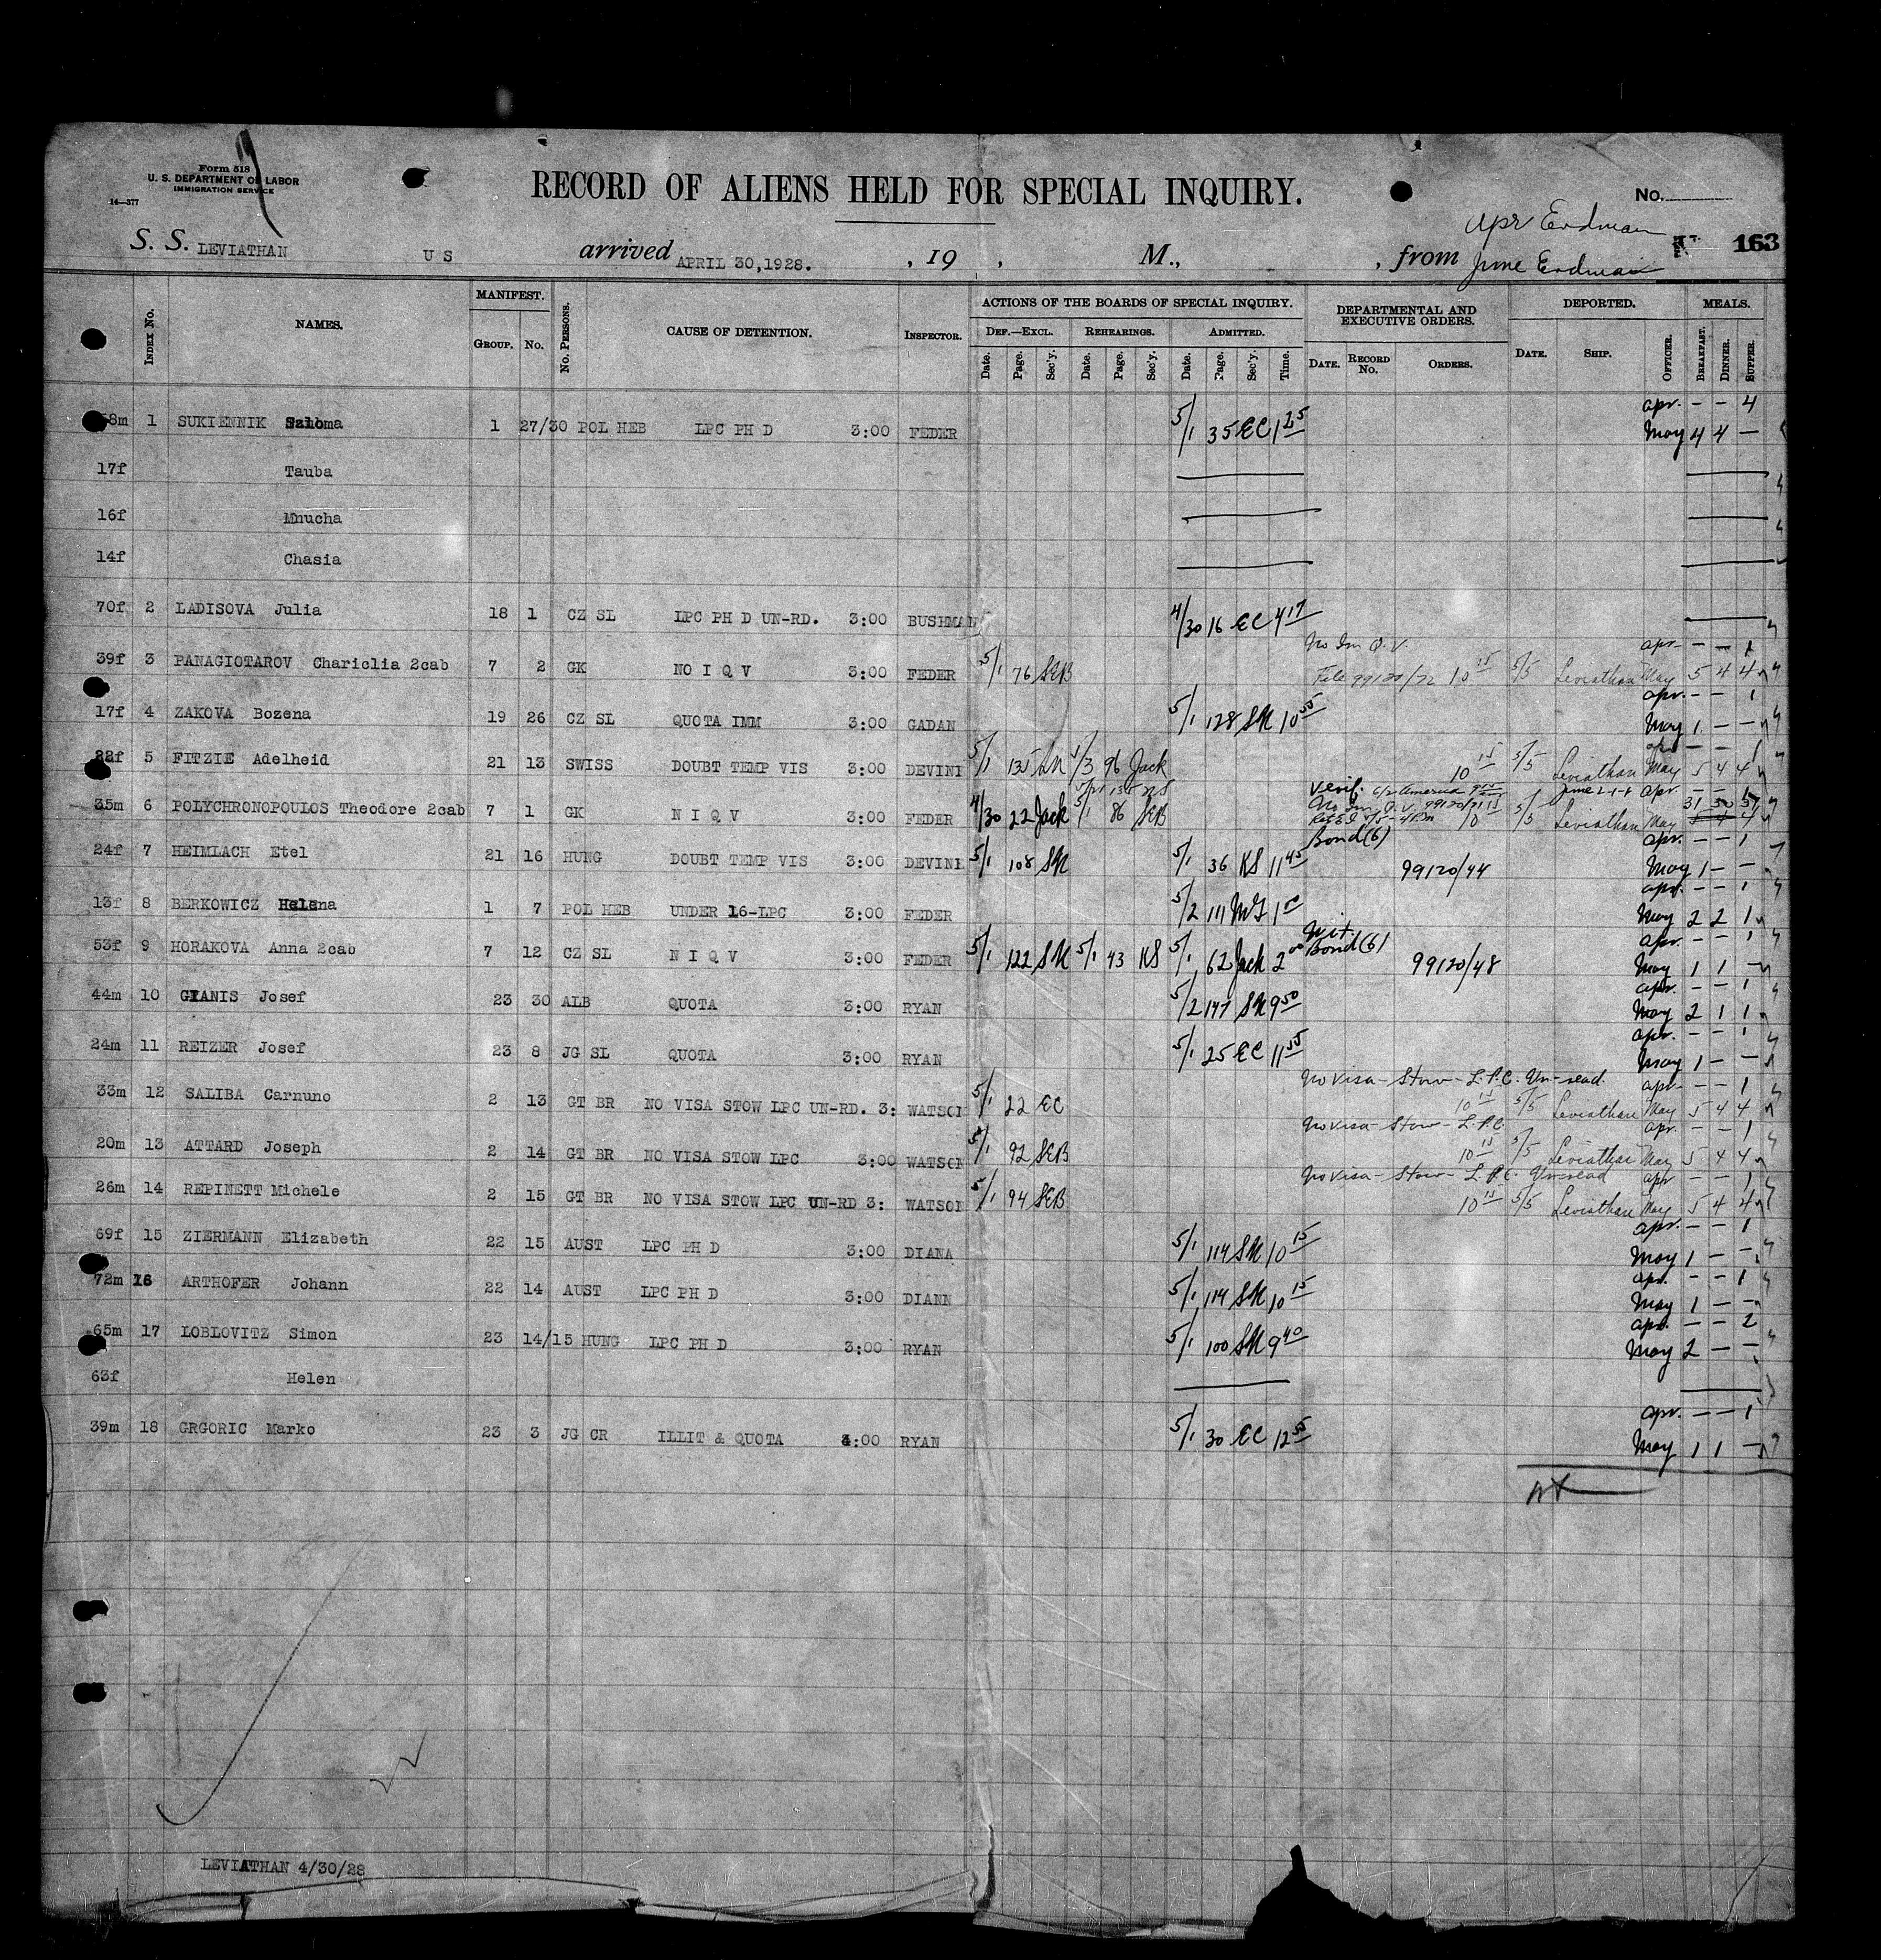 Form 518
U. S. DEPARTMENT OF LABOR
IMMIGRATION SERVICE
14—377
RECORD OF ALIENS HELD FOR SPECIAL INQUIRY.
No.
Apr Erdman
S. S. LEVIATHAN U S arrived APRIL 30,1928. , 19 , M., , from June Erdman 163
INDEX No. NAMES. MANIFEST. GROUP. No. No. PERSONS. CAUSE OF DETENTION. INSPECTOR. ACTIONS OF THE BOARDS OF SPECIAL INQUIRY. DEF.—EXCL. Date. Page. Sec'y. REHEARINGS. Date. Page. Sec'y. ADMITTED. Date. Page. Sec'y. Time. DEPARTMENTAL AND EXECUTIVE ORDERS. DATE. RECORD No. ORDERS. DEPORTED. DATE. SHIP. OFFICER. MEALS. BREAKFAST. DINNER. SUPPER.
Apr. - - 4
58m 1 SUKIENNIK Szloma 1 27/30 POL HEB LPC PH D 3:00 FEDER 5/1 35 EC 1 25 May 4 4 -
17f Tauba
16f Mnucha
14f Chasia
70f 2 LADISOVA Julia 18 1 CZ SL LPC PH D UN-RD. 3:00 BUSHMAN 4/30 16 EC 4 17
No Im Q. V. Apr - - 1
39f 3 PANAGIOTAROV Chariclia 2cab 7 2 GK NO I Q V 3:00 FEDER 5/1 76 SEB File 99120/72 10 15 5/5 Leviathan May 5 4 4
Apr. - - 1
17f 4 ZAKOVA Bozena 19 26 CZ SL QUOTA IMM 3:00 GADAN 5/1 128 SN 10 55 May 1 - -
Apr - - 1
22f 5 FITZIE Adelheid 21 13 SWISS DOUBT TEMP VIS 3:00 DEVINE 5/1 135 SN 5/3 96 Jack 10 15 5/5 Leviathan May 5 4 4
Verif. 6/2 America June 2-1-1 Apr. - - 1
35m 6 POLYCHRONOPOULOS Theodore 2cab 7 1 GK N I Q V 3:00 FEDER 4/30 22 Jack 5/1 86 SEB No Im Q. V. 99120/71 10 5/5 Leviathan May 31 30 31
Bond (6) Apr. - - 1
24f 7 HEIMLACH Etel 21 16 HUNG DOUBT TEMP VIS 3:00 DEVINE 5/1 108 SN 5/1 36 KS 11 45 99120/44 May 1 - -
Apr. - - 1
13f 8 BERKOWICZ Helena 1 7 POL HEB UNDER 16-LPC 3:00 FEDER 5/2 111 1 00 May 2 2 1
Wit. Bond (6) Apr. - - 1
53f 9 HORAKOVA Anna 2cab 7 12 CZ SL N I Q V 3:00 FEDER 5/1 122 SN 5/1 43 KS 5/1 62 Jack 2 00 99120/48 May 1 1 -
Apr. - - 1
44m 10 GIANIS Josef 23 30 ALB QUOTA 3:00 RYAN 5/2 147 SN 9 50 May 2 1 1
Apr. - - 1
24m 11 REIZER Josef 23 8 JG SL QUOTA 3:00 RYAN 5/1 25 EC 11 55 May 1 - -
No Visa - Stow - L.P.C. Un-read. Apr - - 1
33m 12 SALIBA Carnuno 2 13 GT BR NO VISA STOW LPC UN-RD. 3: WATSON 5/1 22 EC 10 15 5/5 Leviathan May 5 4 4
No Visa - Stow - L.P.C Apr. - - 1
20m 13 ATTARD Joseph 2 14 GT BR NO VISA STOW LPC 3:00 WATSON 5/1 92 SEB 10 15 5/5 Leviathan May 5 4 4
No Visa - Stow - L.P.C. Unread Apr - - 1
26m 14 REPINETT Michele 2 15 GT BR NO VISA STOW LPC UN-RD 3: WATSON 5/1 94 SEB 10 15 5/5 Leviathan May 5 4 4
Apr. - - 1
69f 15 ZIERMANN Elizabeth 22 15 AUST LPC PH D 3:00 DIANA 5/1 114 SN 10 15 May 1 - -
Apr. - - 1
72m 16 ARTHOFER Johann 22 14 AUST LPC PH D 3:00 DIANN 5/1 114 SN 10 15 May 1 - -
Apr. - - 2
65m 17 LOBLOVITZ Simon 23 14/15 HUNG LPC PH D 3:00 RYAN 5/1 100 SN 9 40 May 2 - -
63f Helen
Apr. - - 1
39m 18 GRGORIC Marko 23 3 JG CR ILLIT & QUOTA 4:00 RYAN 5/1 30 EC 12 55 May 1 1 -
LEVIATHAN 4/30/28